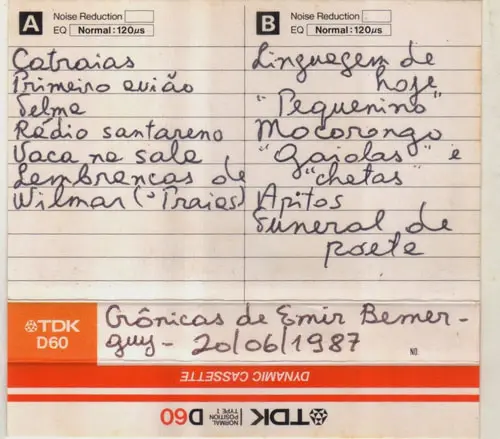 A Noise Reduction
EQ Normal: 120µs
Catraias
Primeiro avião
Telma
Rádio santareno
Vaca na sala
Lembranças de
Wilmar (Praias)
B Noise Reduction
EQ Normal: 120µs
Linguagem de
hoje
"Pequenino"
Mocorongo
"Gaiolas" e
"chatas"
Apitos
Funeral de
poeta
TDK
D60
Crônicas de Emir Bemer-
guy - 20/06/1987
NO.
DYNAMIC CASSETTE
TDK D60 NORMAL POSITION TYPE I